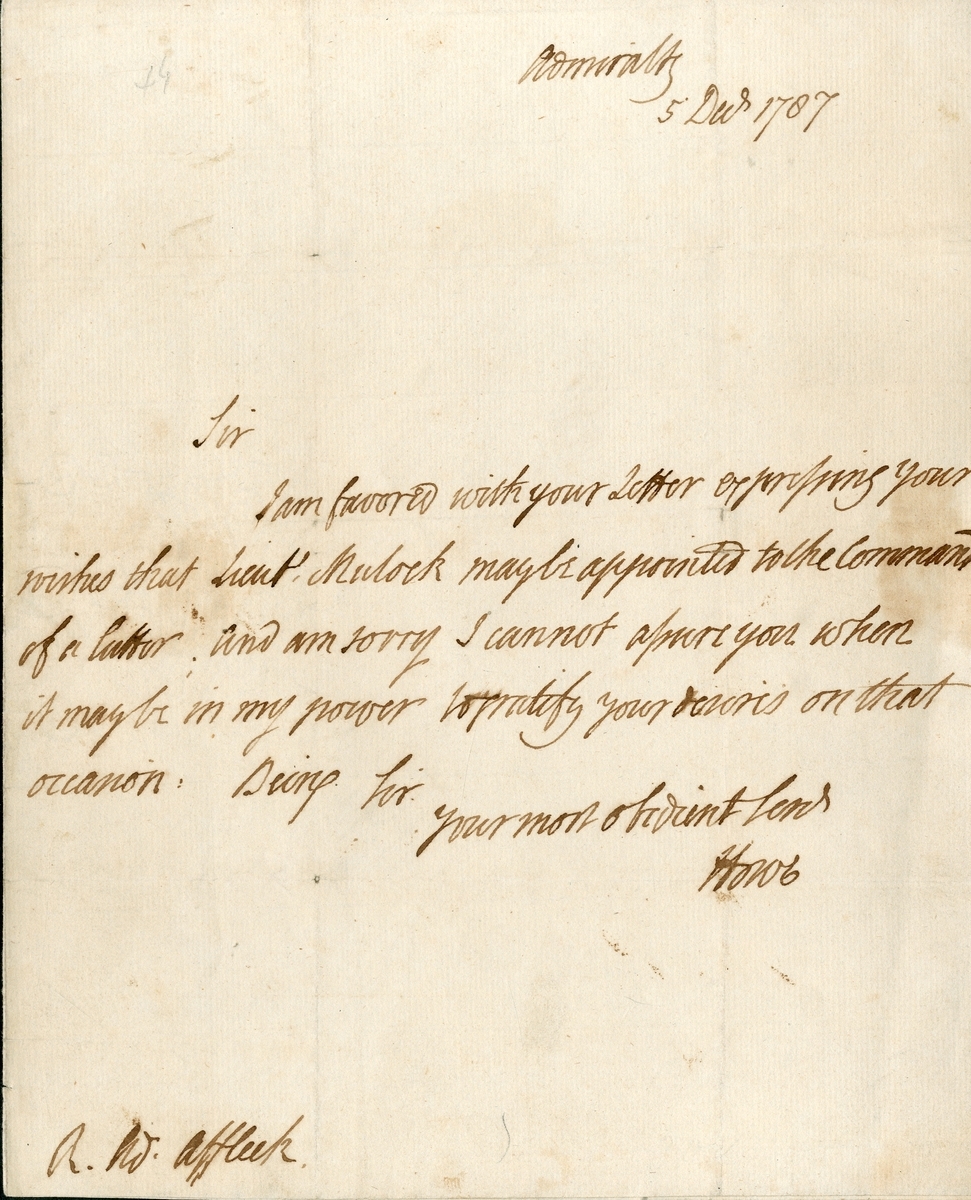 Admiralty
5 Decr 1787
Sir
I am favored with your Letter expressing your
wishes that Lieut. Mulock may be appointed to the Command
of a Cutter; and am sorry I cannot assure you when
it may be in my power to gratify your desires on that
occasion: Being Sir
your most obedient Serv
Howe
R. Ad. Affleck.